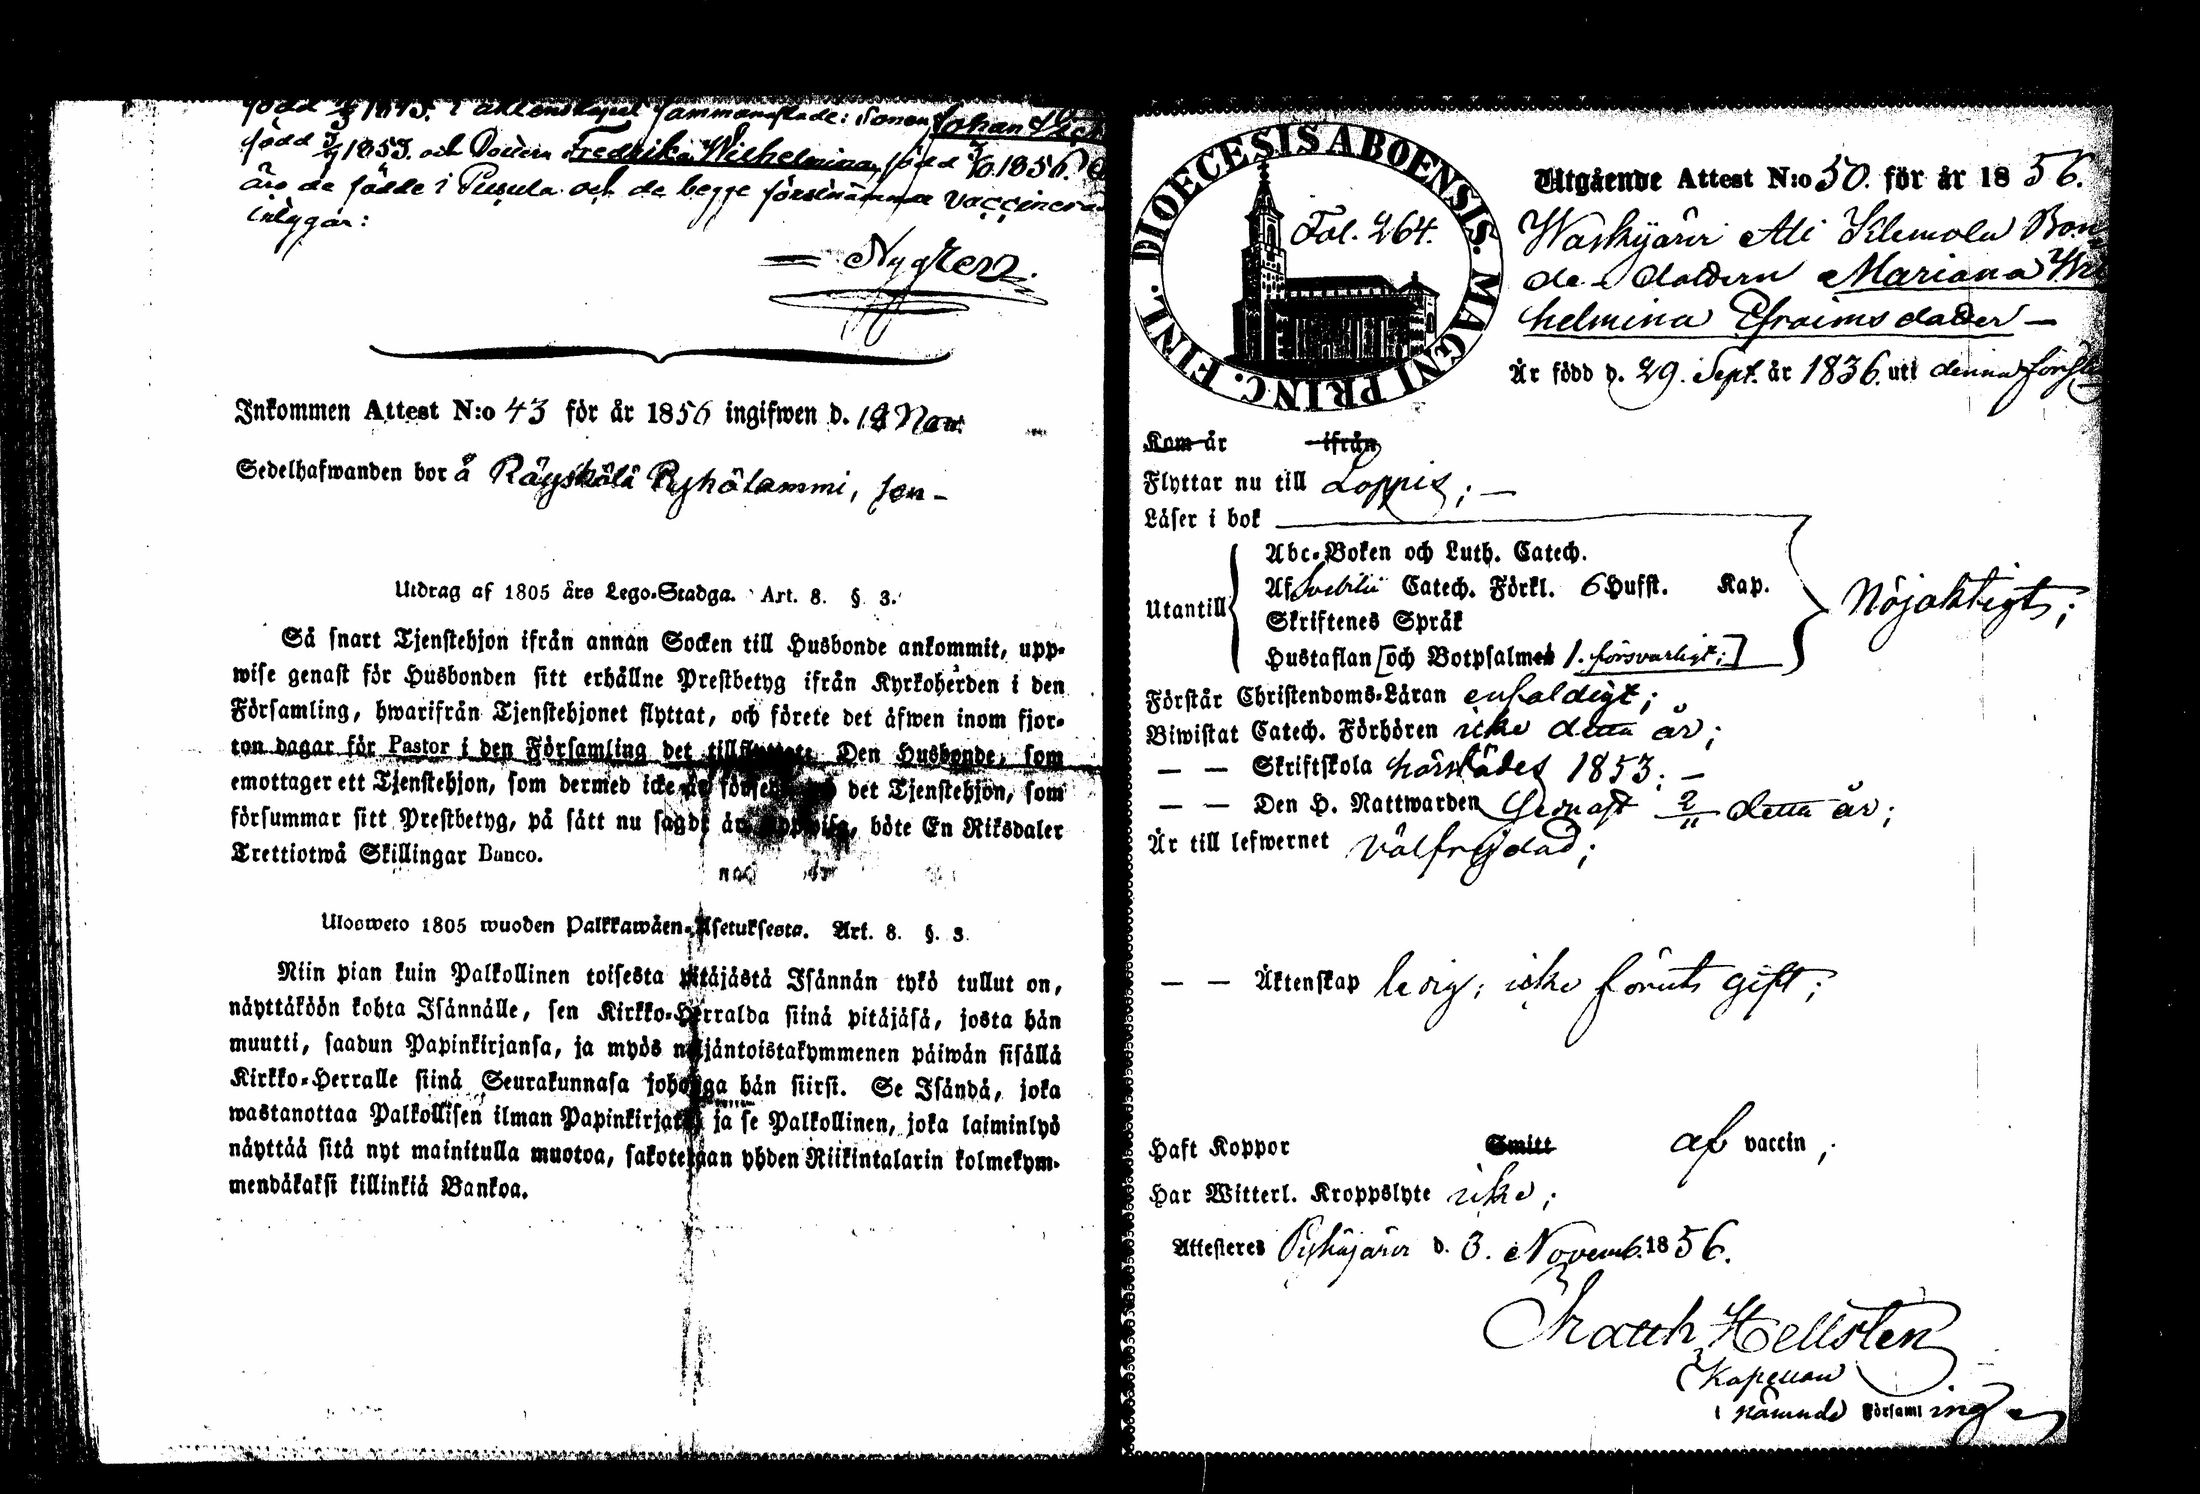 född 1/3 1843. i äktenskapet sammanaflade: Sonen Johan
född 3/4 1853. och Dottern Fredrika Wilhelmina, född 3/6 1856.
äro de födde i Pusula och de begge förstnämnde vaccinera
intygar:
Nygren.
Inkommen Attest N:o 43 för år 1856 ingifwen d. 12 Nov.
Sedelhafwanden bor å Räyskälä Pyhälammi, sen-
Utdrag af 1805 års Lego-Stadga. Art. 8. §. 3.
Så snart Tjenstehjon ifrån annan Socken till Husbonde ankommit, upp-
wise genast för Husbonden sitt erhållne Prestbetyg ifrån Kyrkoherden i den
Församling, hwarifrån Tjenstehjonet flyttat, och förete det äfwen inom fjor-
ton dagar för Pastor i den Församling det tillflyttat. Den Husbonde, som
emottager ett Tjenstehjon, som dermed icke är försedt det Tjenstehjon, som
försummar sitt Prestbetyg, på sätt nu sagdt är, uppwisa, böte En Riksdaler
Trettiotwå Skillingar Banco.
Ulosweto 1805 wuoden Palkkawäen-Asetuksesta. Art. 8. §. 3.
Niin pian kuin Palkollinen toisesta pitäjästä Isännän tykö tullut on,
näyttäköön kohta Isännälle, sen Kirkko-Herralda siinä pitäjäsä, josta hän
muutti, saadun Papinkirjansa, ja myös neljäntoistakymmenen päiwän sisällä
Kirkko-Herralle siinä Seurakunnasa johonga hän siirsi. Se Isändä, joka
wastanottaa Palkollisen ilman Papinkirjata, ja se Palkollinen, joka laiminlyö
näyttää sitä nyt mainitulla muotoa, sakotetaan yhden Riikintalarin kolmekym-
mendäkaksi killinkiä Bankoa.
DIOECESIS ABOENSIS. MAGNI PRINC. FINL.
Fol. 264.
Utgående Attest N:o 50. för år 1856.
Waskijärvi Ali Klemola Bon-
de-dottern Mariana Wil
helmina Efraimsdotter —
Är född d. 29. Sept. år 1836. uti denna förs
Kom år ifrån
Flyttar nu till Loppis; —
Läser i bok
Utantill
Abc-Boken och Luth. Catech.
Af Svebilii Catech. Förkl. 6 Hufst. Kap.
Skriftenes Språk
Hustaflan [och Botpsalmen 1. försvarligt;]
Nöjaktigt;
Förstår Christendoms-Läran enfaldigt;
Biwistat Catech. Förhören icke detta år;
— — Skriftskola härstädes 1853; —
— — Den H. Nattwarden senast 2/11 detta år;
Är till lefwernet välfrejdad;
— — Äktenskap ledig; icke förut gift;
Haft Koppor Smitt af vaccin;
Har Witterl. Kroppslyte icke;
Attesteres Pyhäjärvi d. 3. Novemb. 1856.
Hellsten
Kapellan
i nämnde Församling